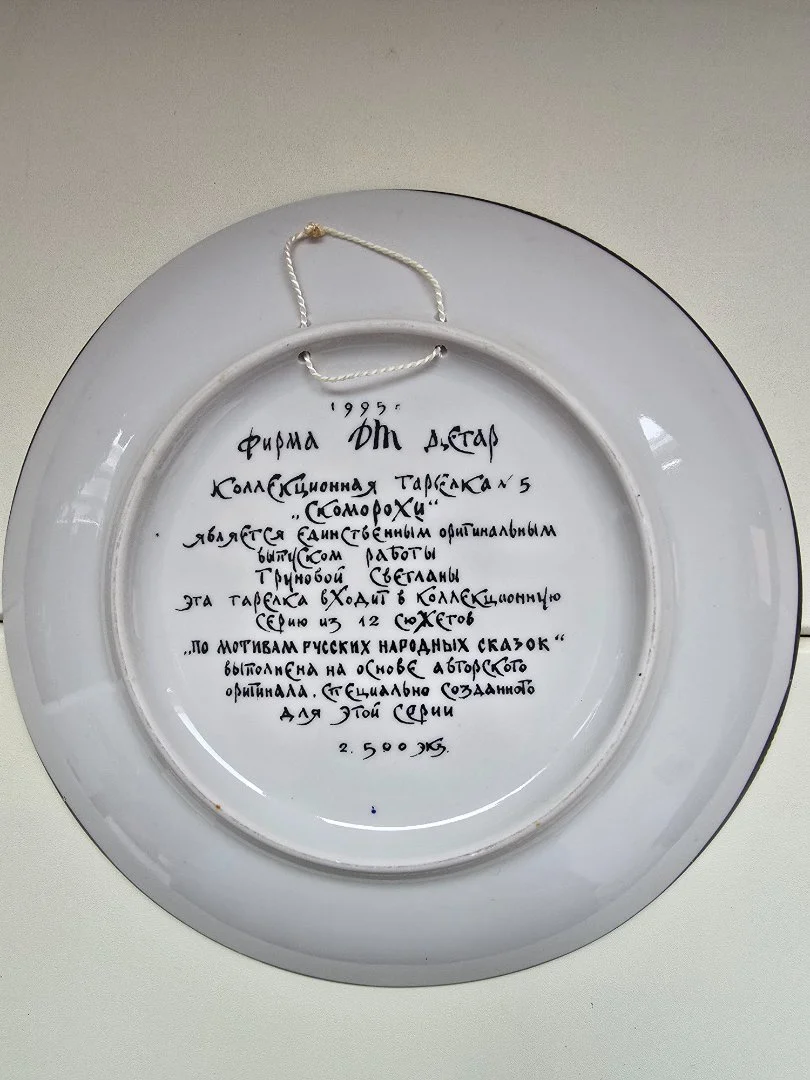 1995г
фирма ДТ детар
Коллекционная тарелка № 5
„Скоморохи“
является единственным оригинальным
выпуском работы
Труновой Светланы
эта тарелка входит в коллекционную
серию из 12 сюжетов
„ПО МОТИВАМ РУССКИХ НАРОДНЫХ СКАЗОК“
выполнена на основе авторского
оригинала. специально созданного
для этой серии
2.500 экз.